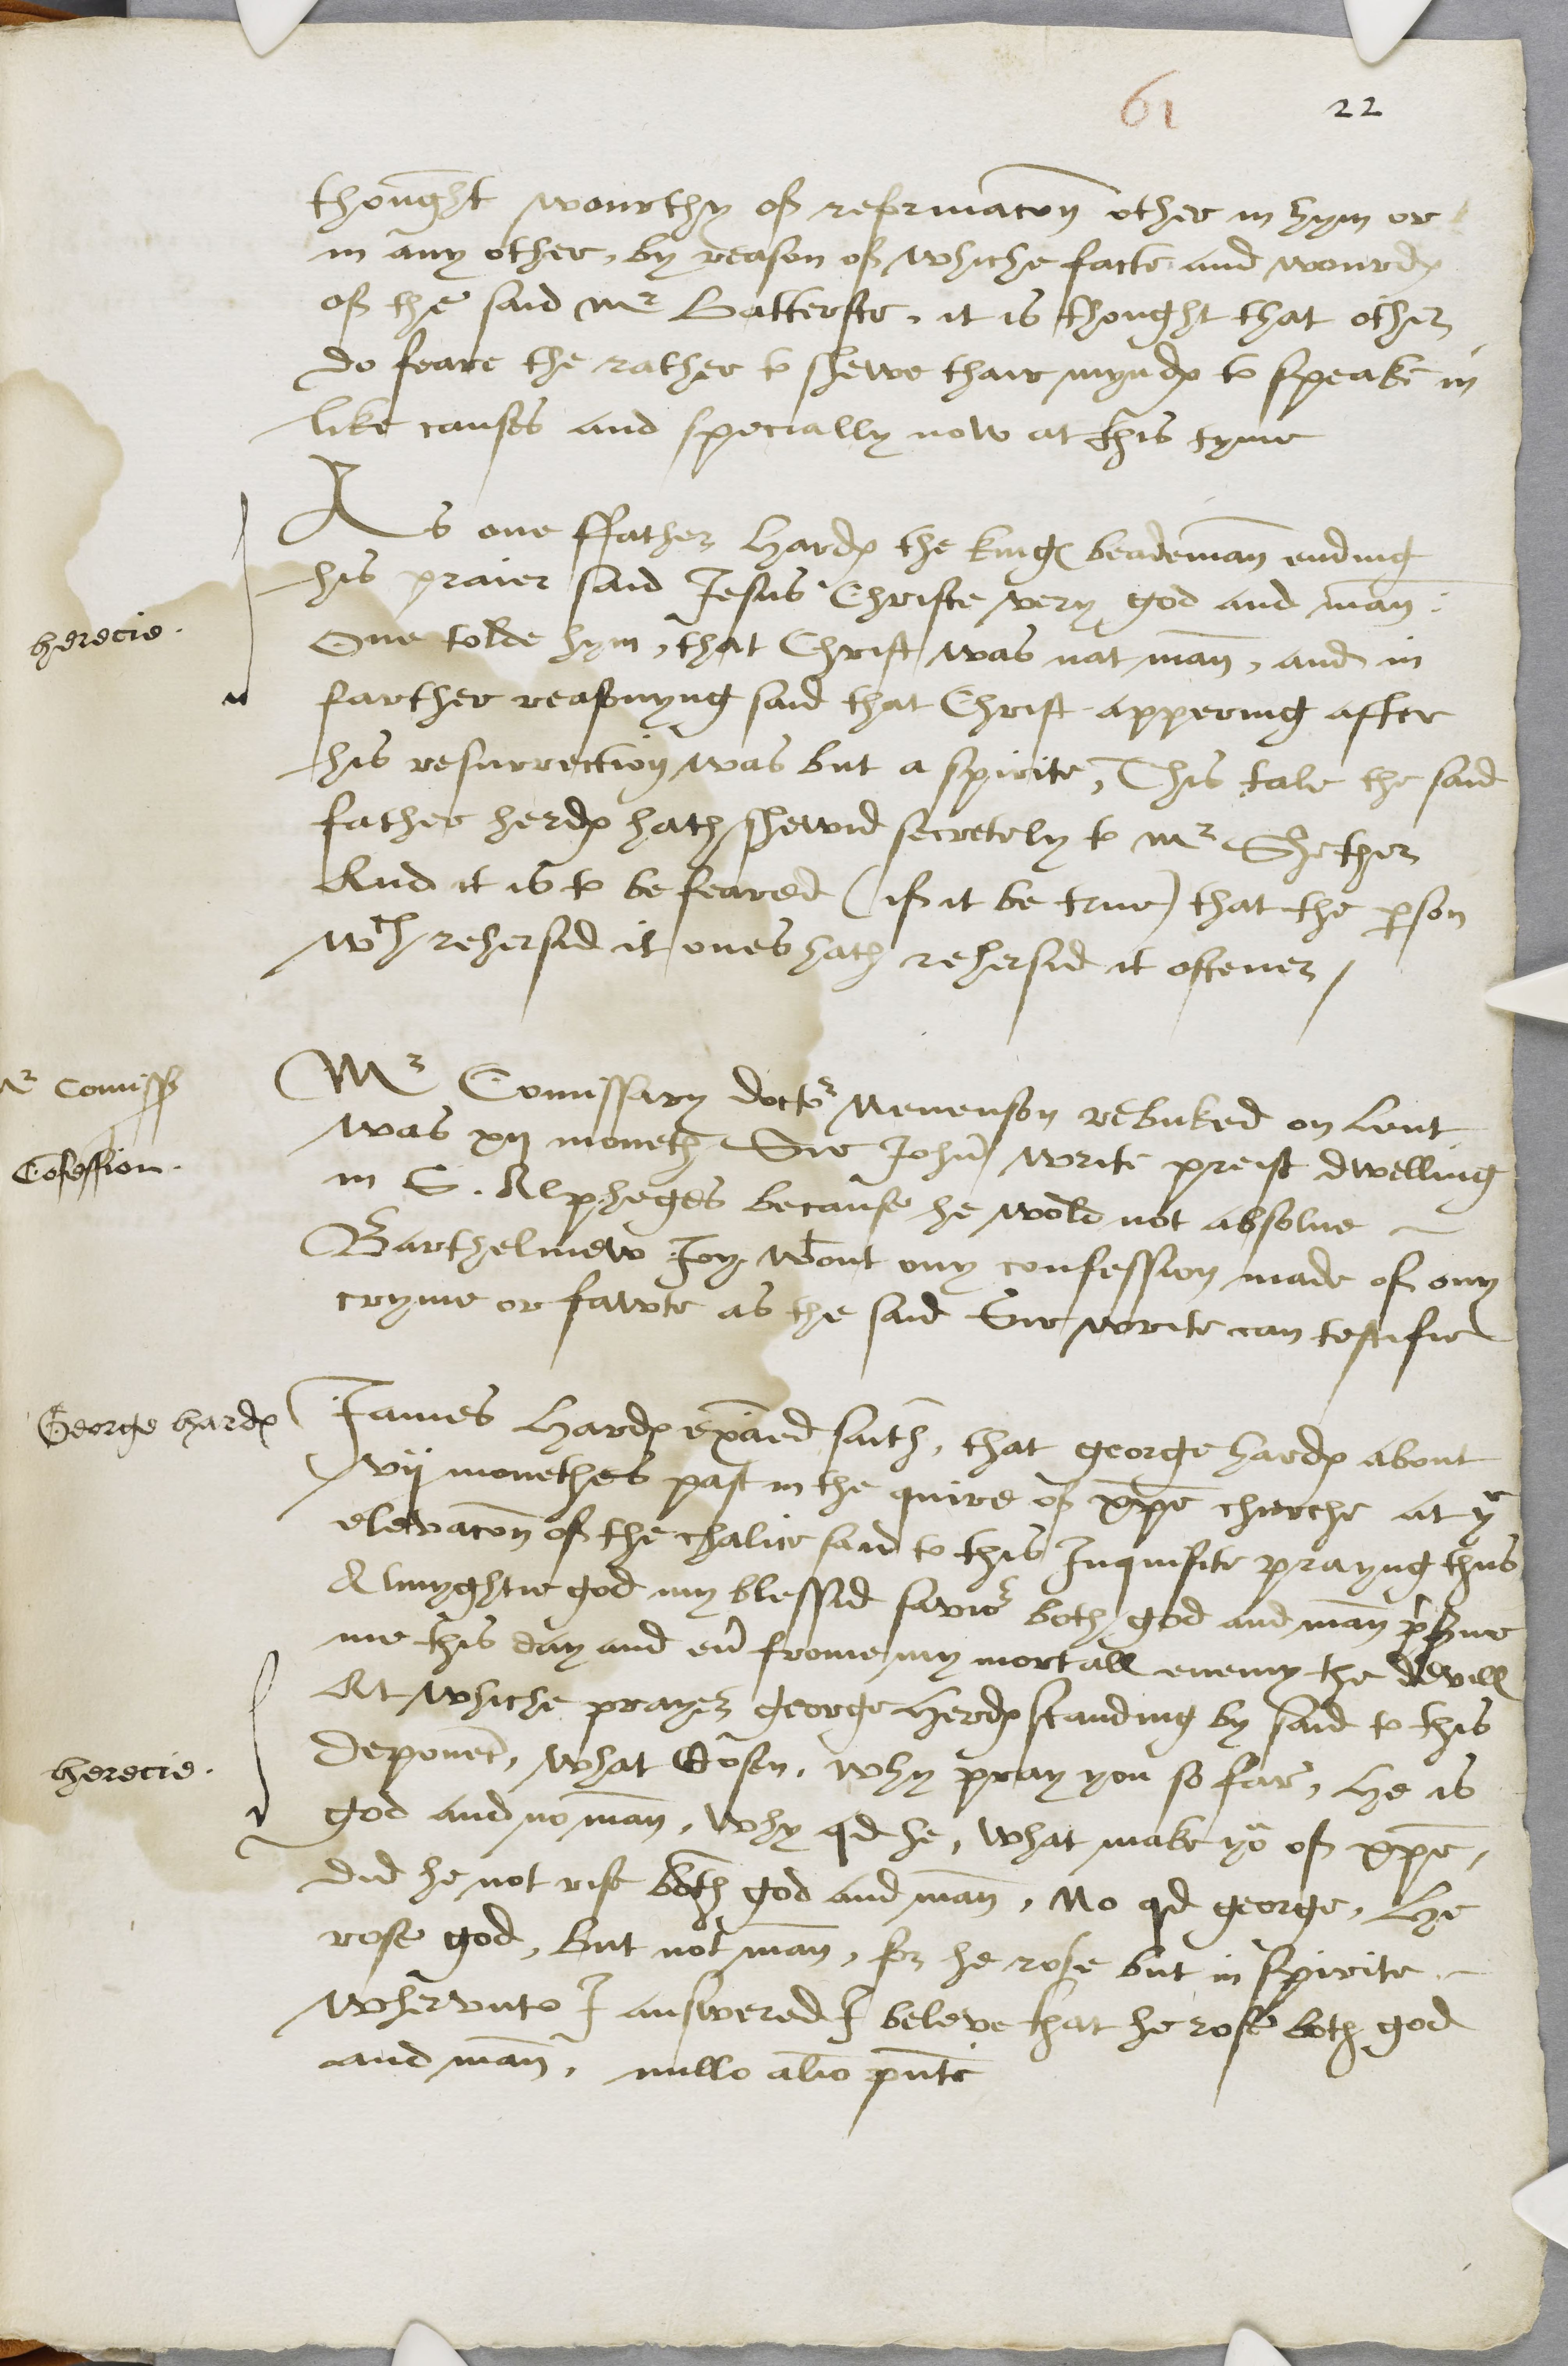 61 22
thought wourthy of reformacon other in hym or
in any other, by reason of whiche facte and wourdes
of the said Mr Batterste, it is thought that other
do feare the rather to shewe thair myndes to speake in
like causes and specially now at this tyme
As one ffather Hardes the kinges beademan ending
his praier said Jesus Christe very god and man.
herecie.
One tolde hym, that Christ was nat man, and in
farther reasonyng said that Christ appering after
his resurrection was but a spirite, This tale the said
father herdes hath shewid secretely to Mr Shether
And it is to be feared (if it be true) that the person
wch rehersid it ones hath rehersid it oftener /
Mr Comissary doctor Nevenson rebuked on Lent
Mr Comiss
was xij moneth Sir John write preist dwelling
Confession.
in S. Alpheges because he wold not absolue
Barthelmew Joy wtout ony confession made of ony
cryme or fawte as the said Sir write can testifie
George hardes
James Hardes exaied saith, that george hardes about
vij monethes past in the quire of xpe churche at ye
elevacon of the chalice said to this Inquisite prayng thus
Almyghtie god my blessid savior both god and man preserue
me this day and euer frome my mortall enemy the devill
At whiche prayer george Herdes standing by said to this
deponent, what Cosen, why pray you so far, he is
herecie.
god and no man, why qd he, what make yo of xpe,
did he not rise both god and man, No qd george, He
rose god, but not man, for he rose but in spirite
whervnto I answered I beleve that he rose both god
and man, nullo alio pnte